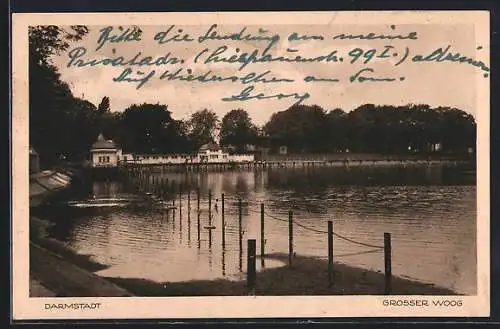 Bitte die Sendung an meine
Privatadr. (Liebfrauenstr. 99 I.) adressieren.
Auf Wiedersehen am
Georg
DARMSTADT
GROSSER WOOG